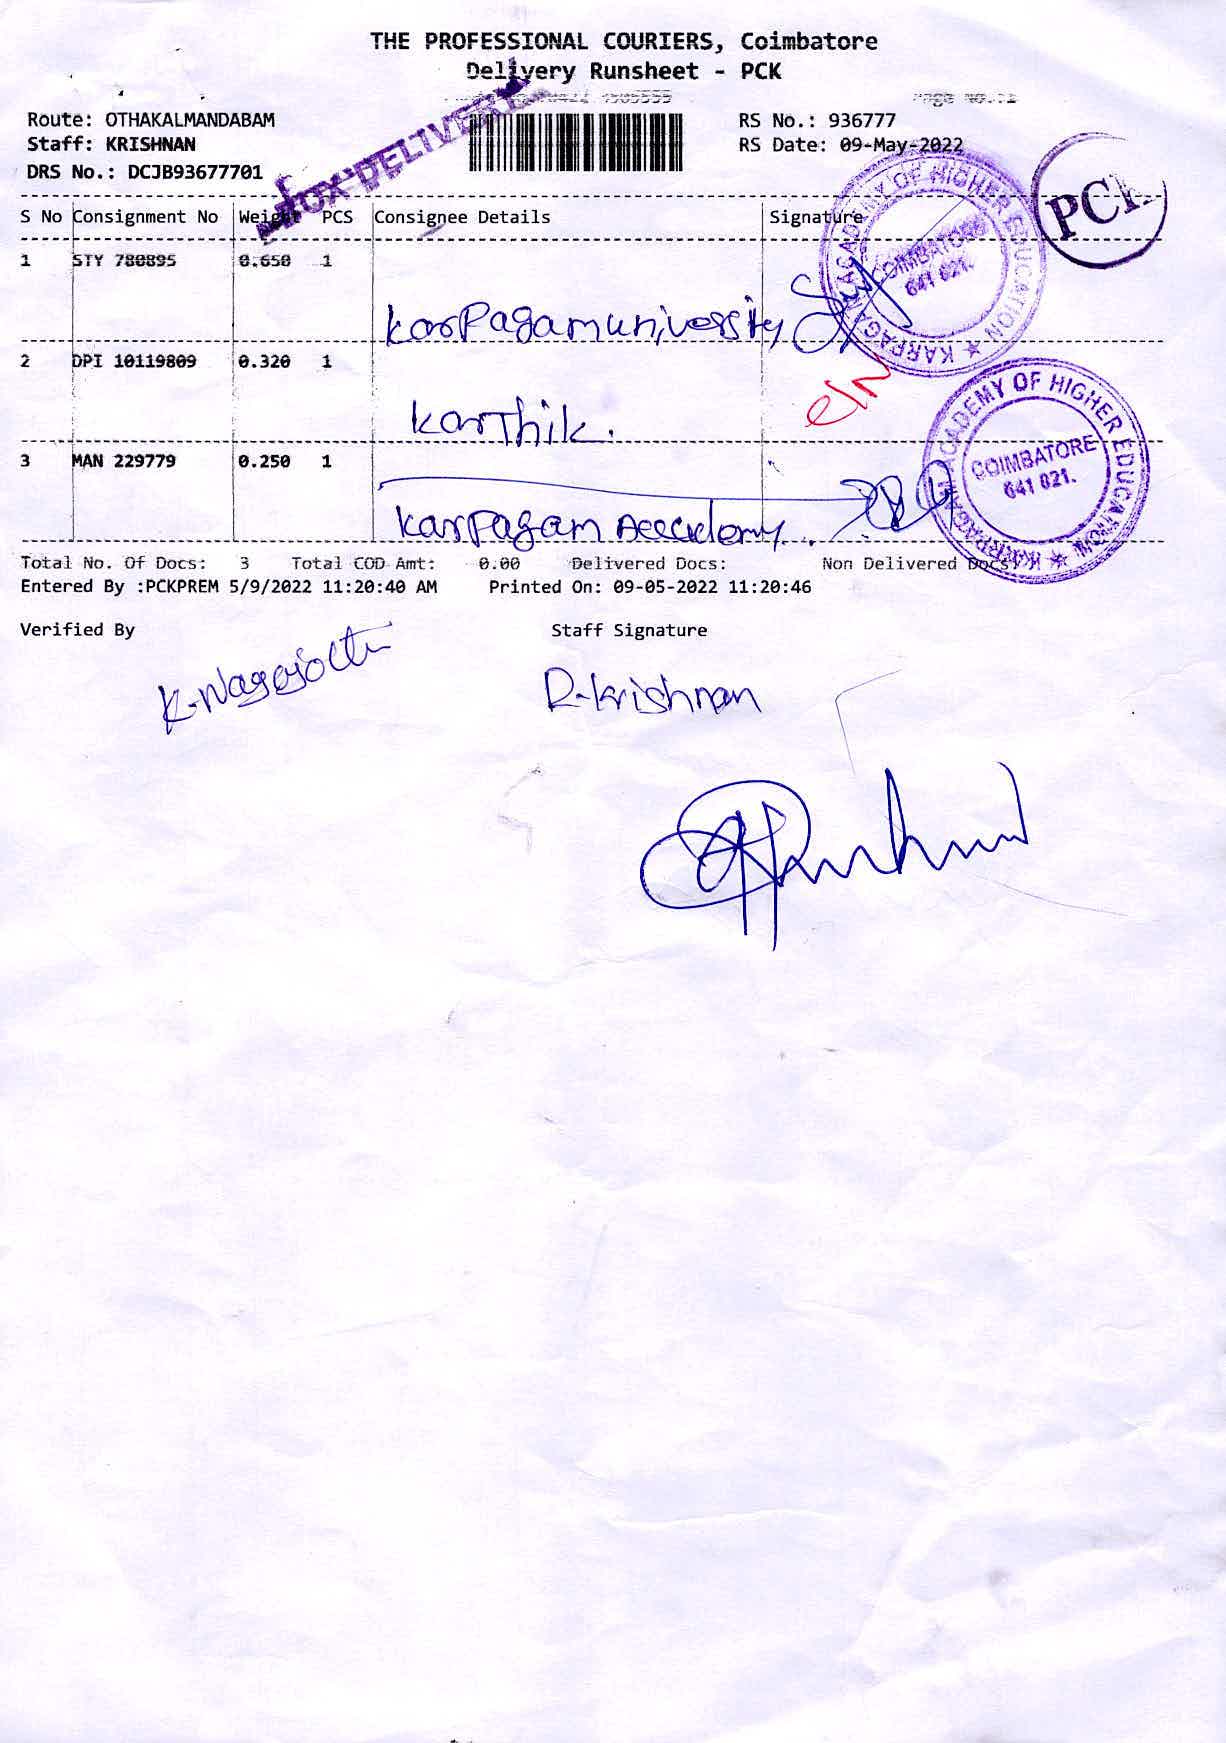 THE PROFESSIONAL COURIERS, Coimbatore
Delivery Runsheet - PCK
Route: OTHAKALMANDABAM
RS No.: 936777
Staff: KRISHNAN
RS Date: 09-May-2022
DRS No.: DCJB93677701
BOX DELIVERY
PCK
S No Consignment No Weight PCS Consignee Details Signature
1 STY 780895 0.650 1
Karpagam university
KARPAGAM ACADEMY OF HIGHER EDUCATION
COIMBATORE
641 021.
2 DPI 10119809 0.320 1
Karthik.
3 MAN 229779 0.250 1
Karpagam Accademy.
KARPAGAM ACADEMY OF HIGHER EDUCATION
COIMBATORE
641 021.
Total No. Of Docs: 3 Total COD Amt: 0.00 Delivered Docs: Non Delivered Docs:
Entered By :PCKPREM 5/9/2022 11:20:40 AM Printed On: 09-05-2022 11:20:46
Verified By Staff Signature
R-Krishnan